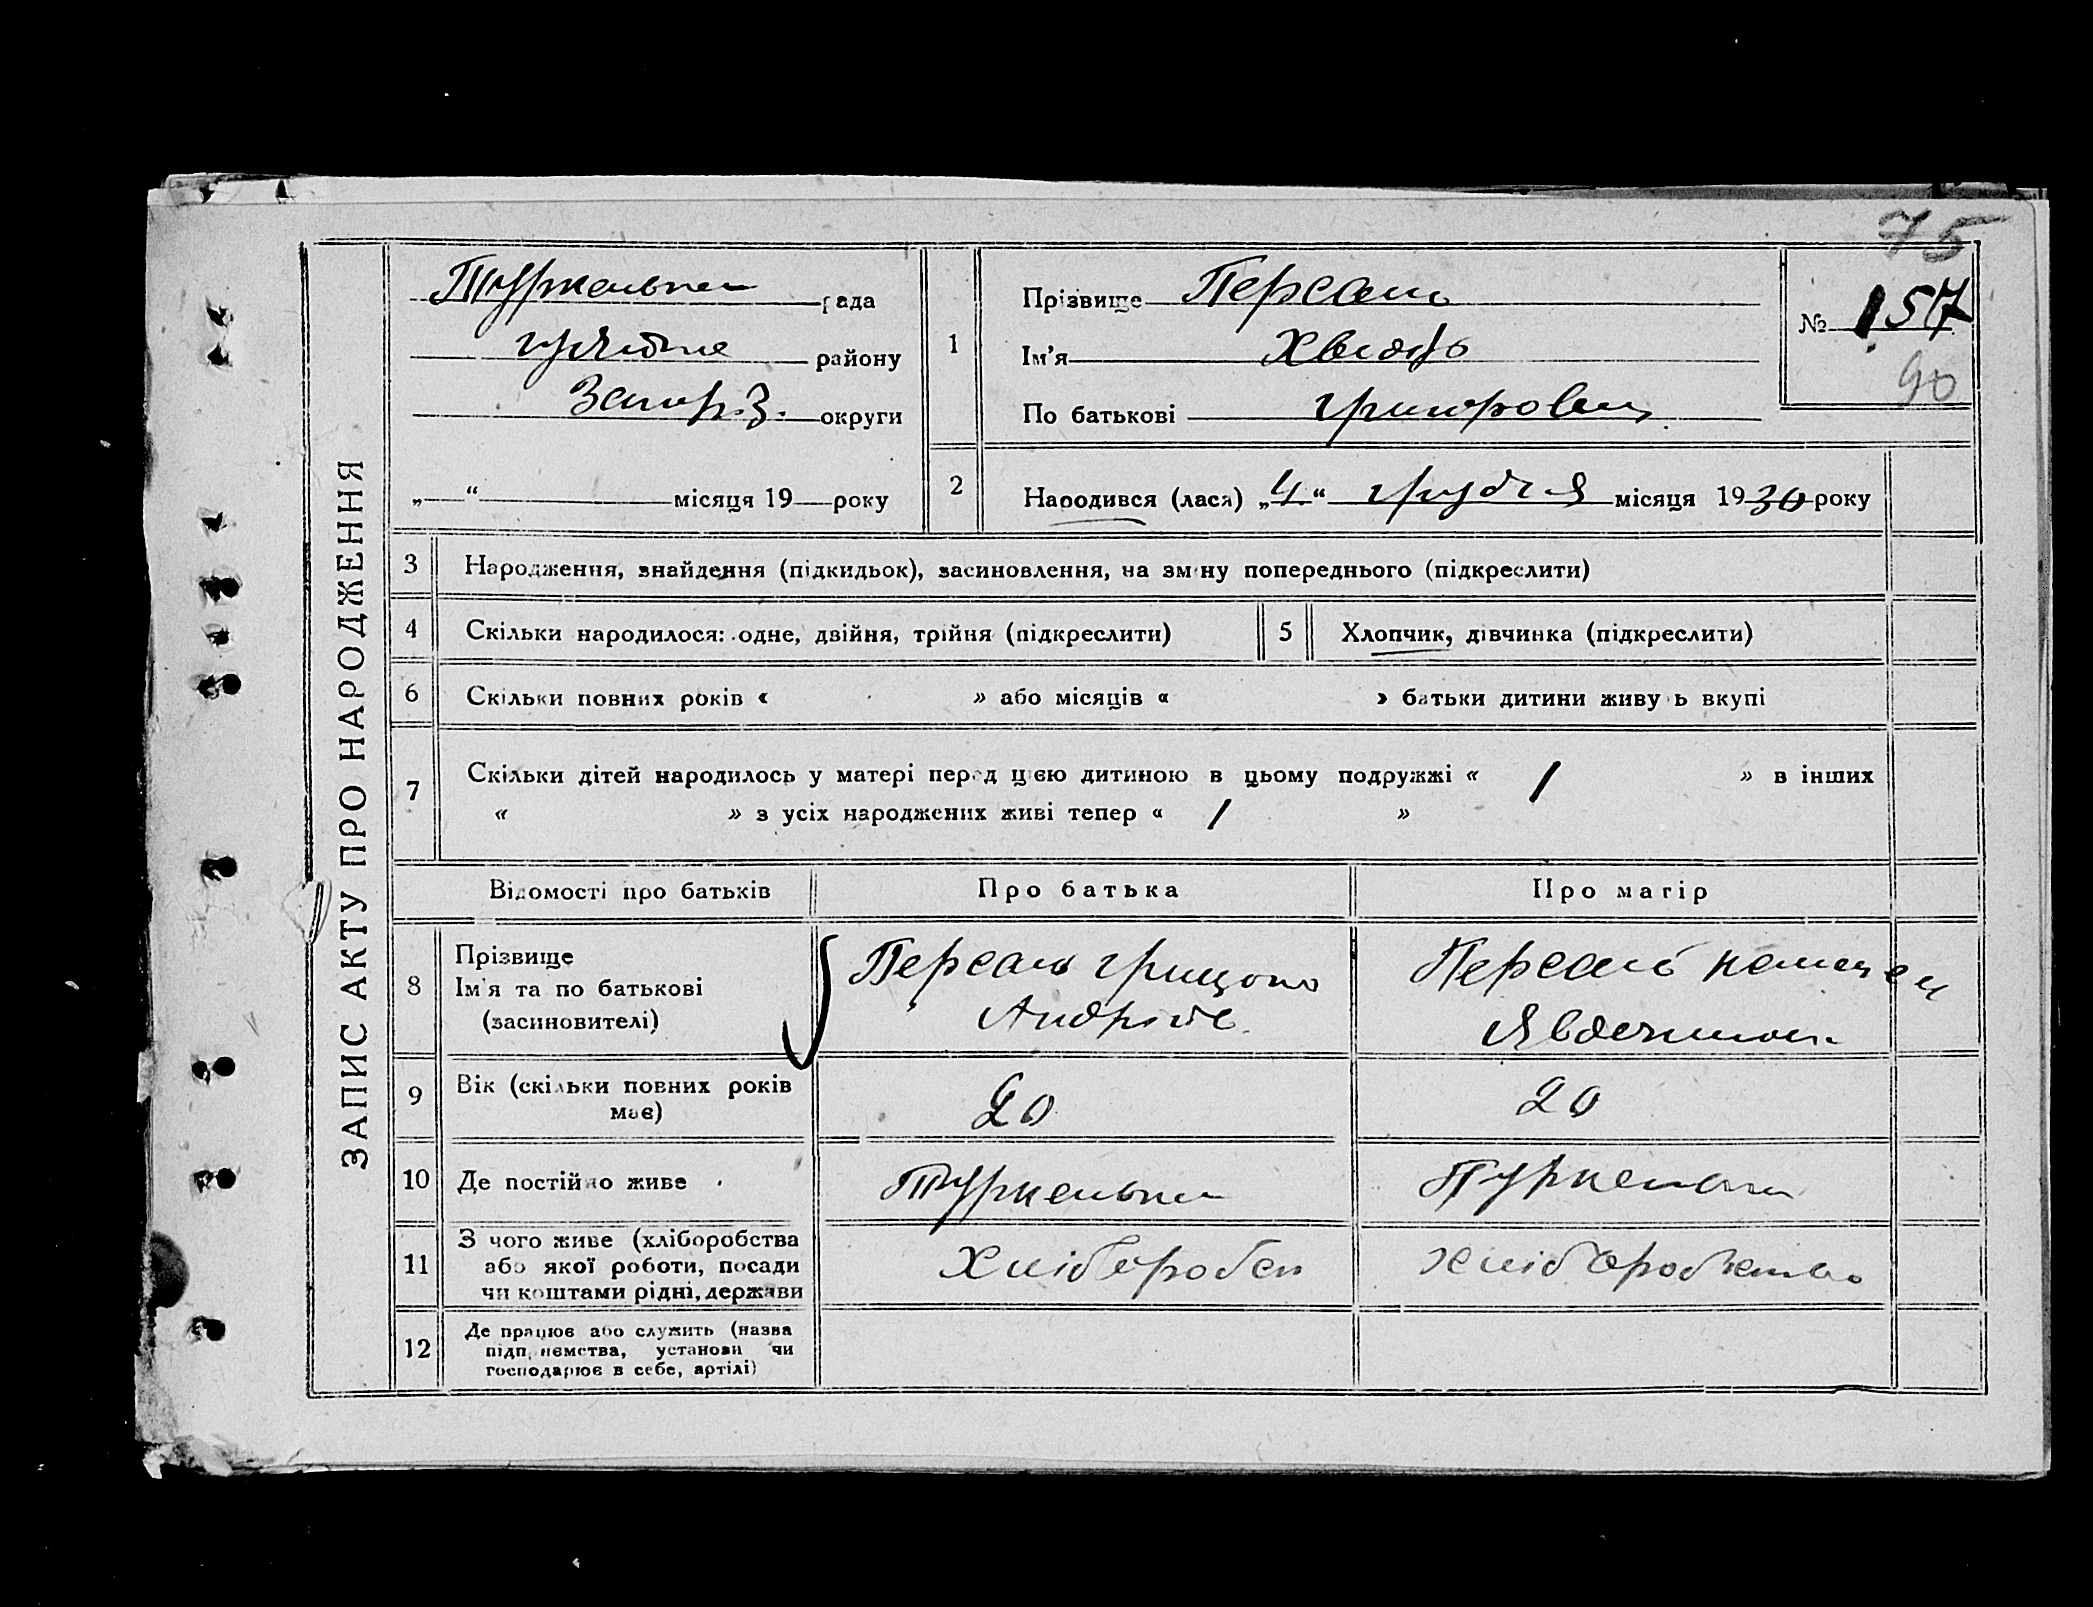 75
ЗАПИС АКТУ ПРО НАРОДЖЕННЯ
Туркенівка рада
району
Запоріз. округи
„ “ місяця 19 року
1
Прізвище Персань
Ім'я Хведір
По батькові Григорович
№ 157
90
2
Народився (лася) „4“ грудня місяця 1930 року
3
Народження, знайдення (підкидьок), засиновлення, на зміну попереднього (підкреслити)
4
Скільки народилося: одне, двійня, трійня (підкреслити)
5
Хлопчик, дівчинка (підкреслити)
6
Скільки повних років « » або місяців « » батьки дитини живуть вкупі
7
Скільки дітей народилось у матері перед цією дитиною в цьому подружжі « 1 » в інших
« » з усіх народжених живі тепер « 1 »
Відомості про батьків
Про батька
Про матір
8
Прізвище
Ім'я та по батькові
(засиновителі)
Персань Грицько
Андрієв.
Персань
9
Вік (скільки повних років
має)
20
20
10
Де постійно живе
Туркенівка
Туркенівка
11
З чого живе (хліборобства
або якої роботи, посади
чи коштами рідні, держави
Хлібороб
хліборобство
12
Де працює або служить (назва
підприємства, установи чи
господарює в себе, артілі)